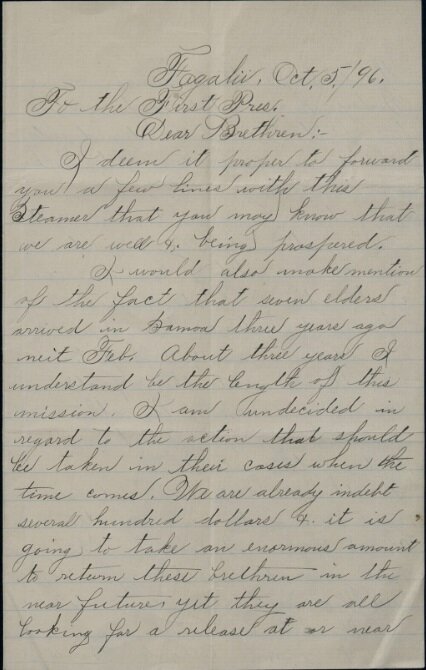 Fagalii, Oct, 5,/96.
To the First Pres.
Dear Brethren:-
I deem it proper to forward
you a few lines with this
Steamer that you may know that
we are well &. being prospered.
I would also make mention
of the fact that seven elders
arrived in Samoa three years ago
neit Feb. About three years I
understand be the length of this
mission. I am undecided in
regard to the action that should
be taken in their cases when the
time comes. We are already indebt
several hundred dollars &. it is
going to take an enormous amount
to return these brethren in the
near future, yet they are all
looking for a release at or near